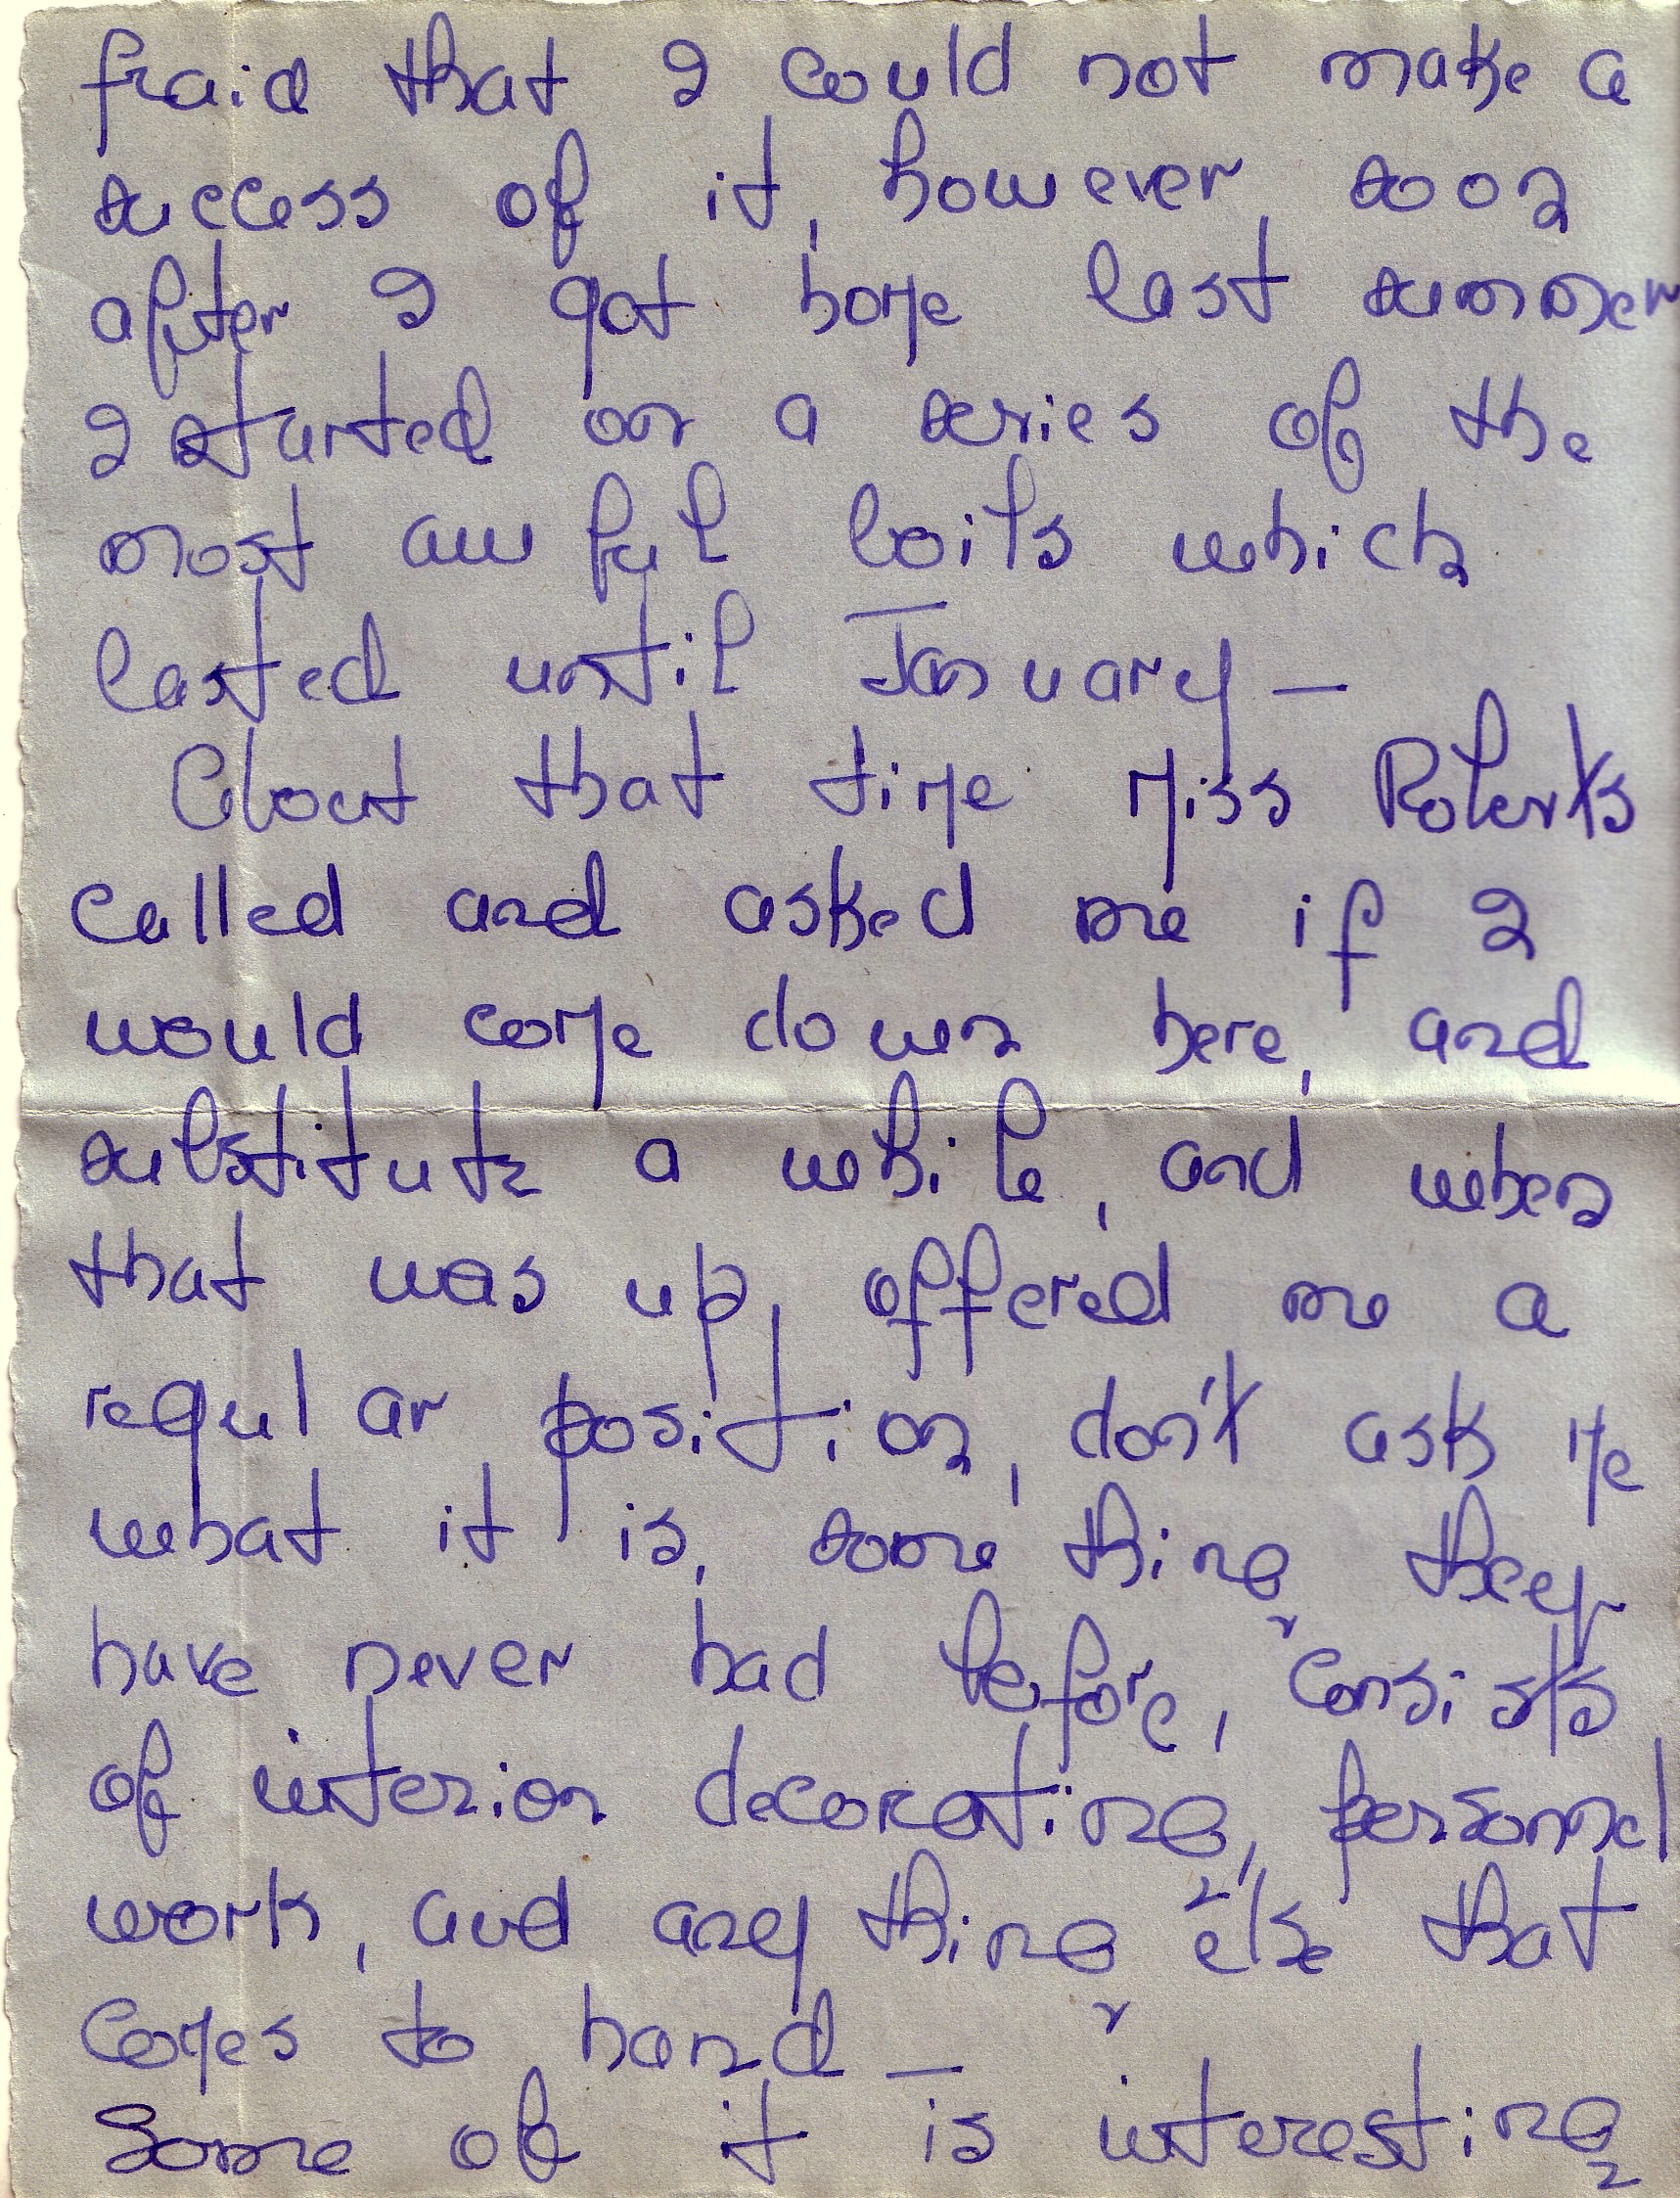 fraid that I could not make a
success of it, however, soon
after I got home last summer
I started on a series of the
most awful boils which
lasted until January —
About that time Miss Roberts
called and asked me if I
would come down here, and
substitute a while, and when
that was up, offered me a
regular position, don't ask me
what it is, some thing they
have never had before, consists
of interior decorating, personnel
work, and any thing else that
comes to hand —
Some of it is interesting